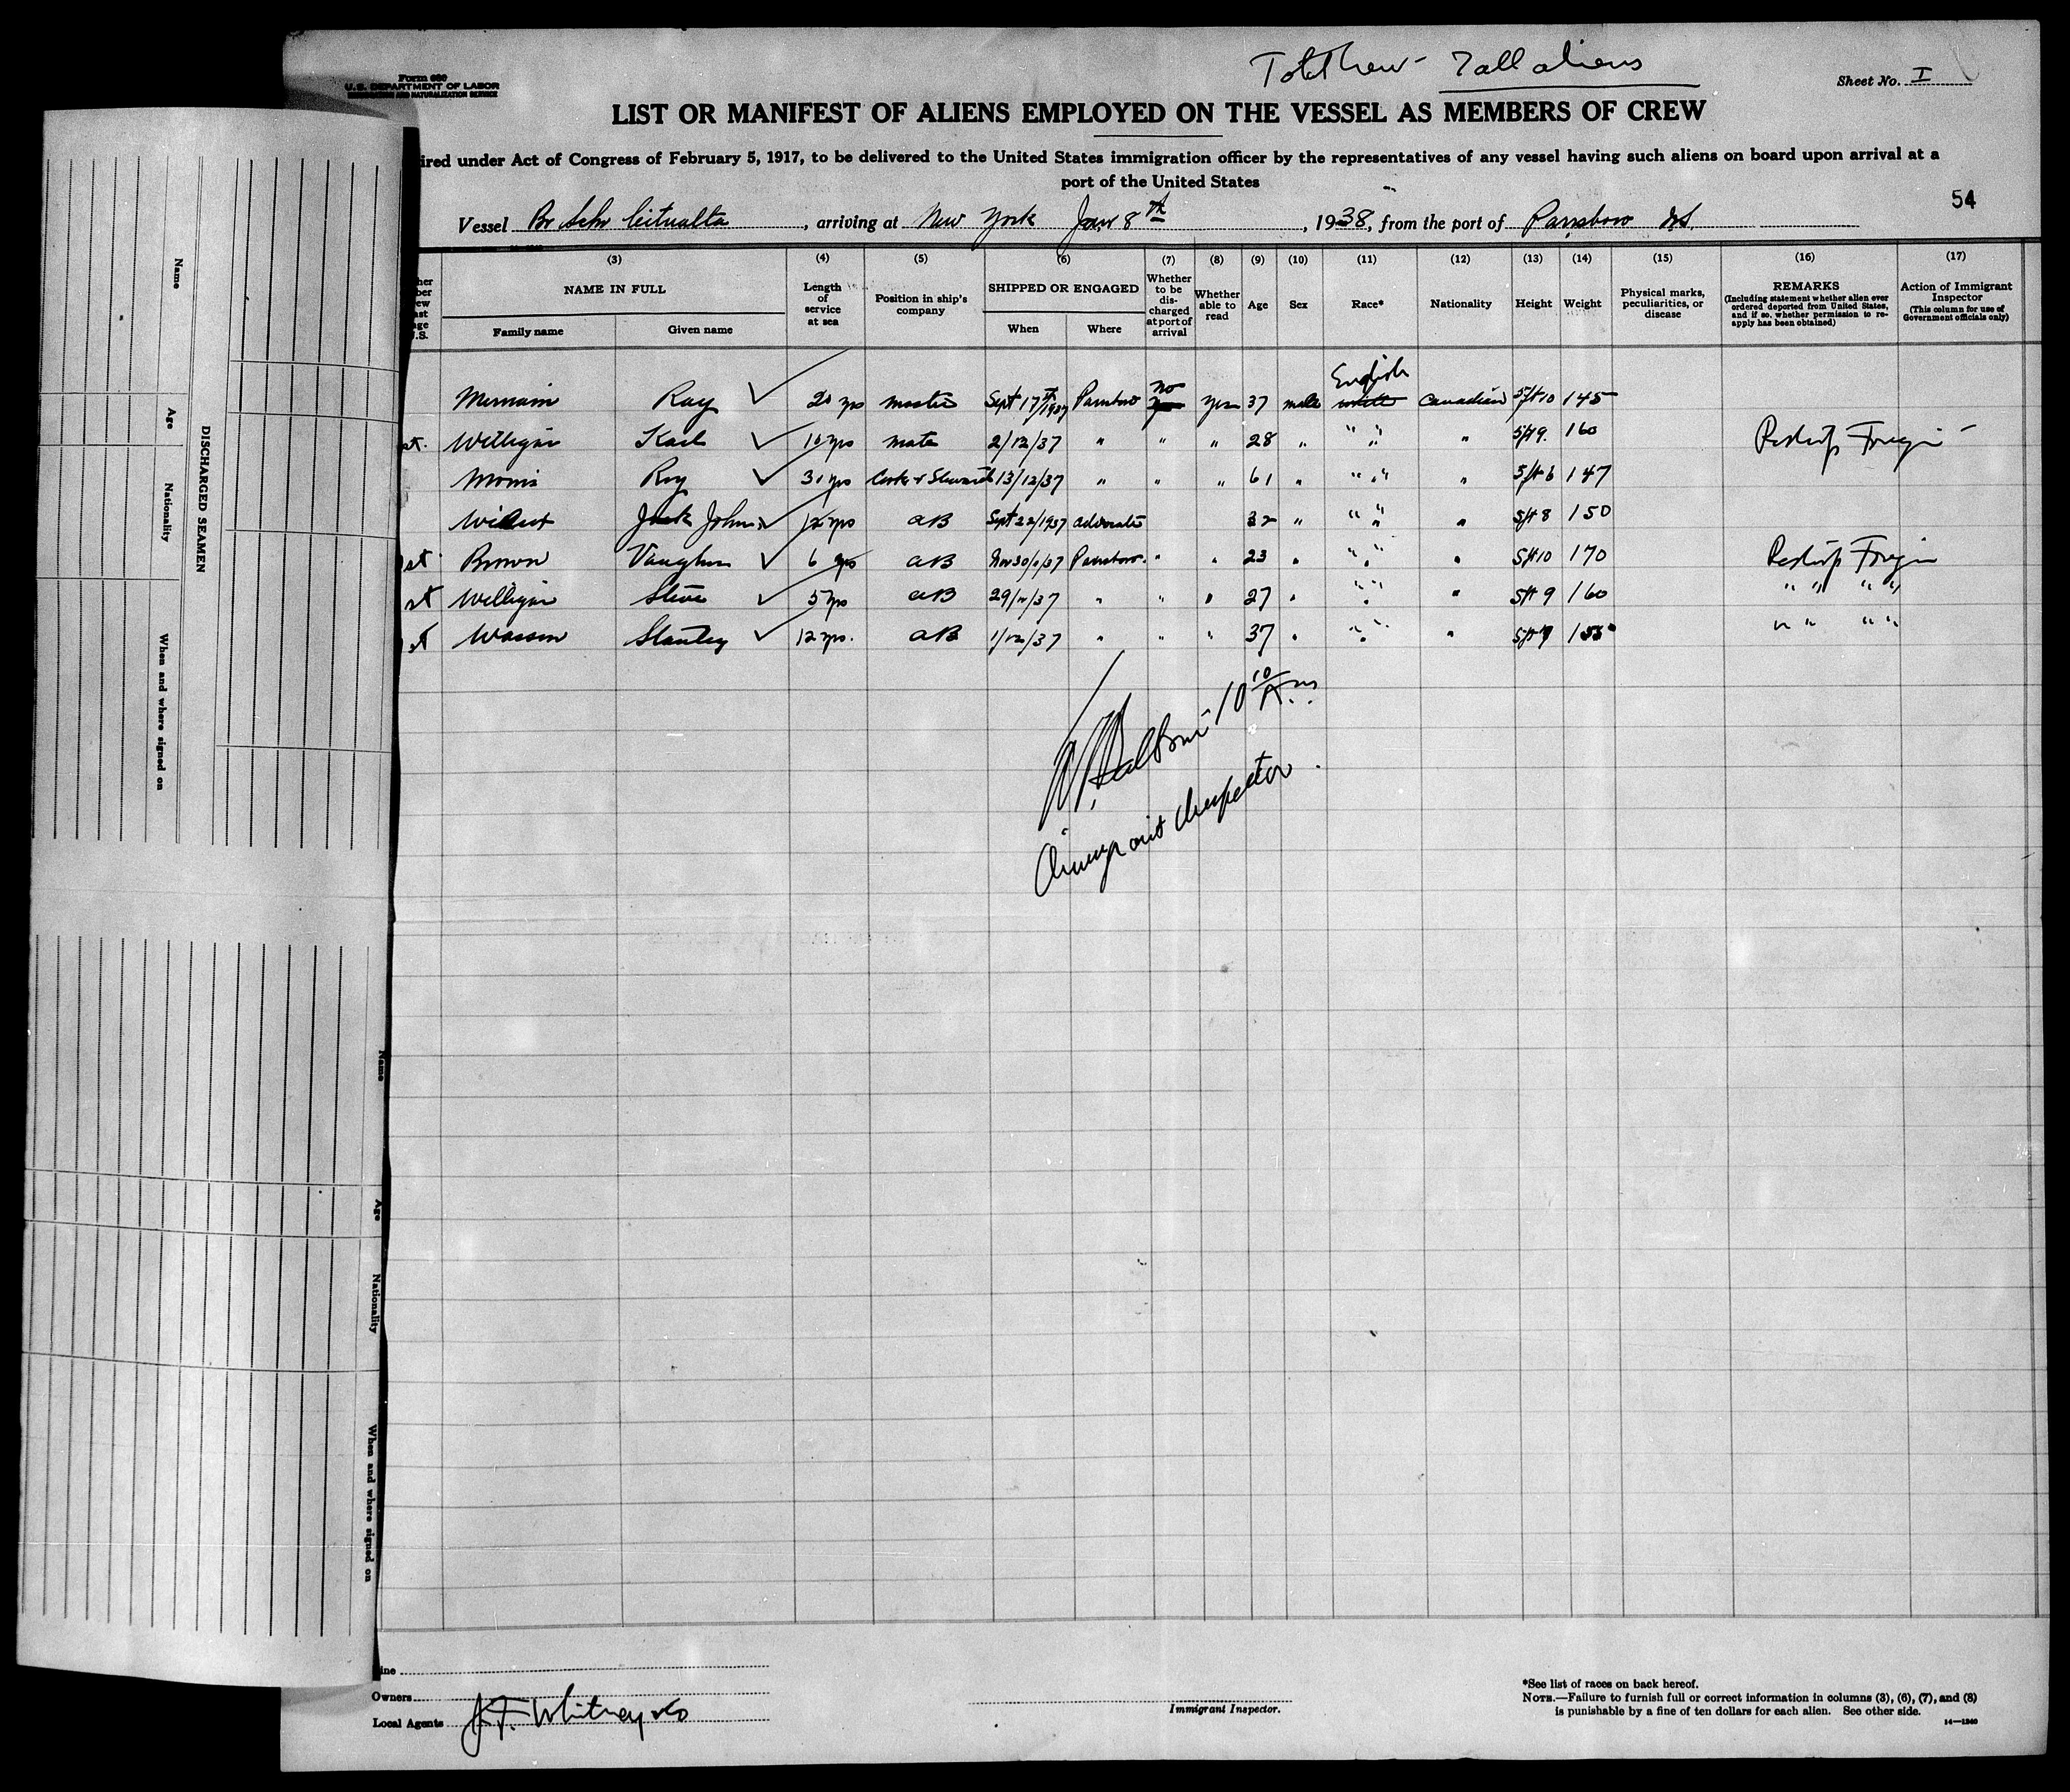 Form 680
U.S. DEPARTMENT OF LABOR
IMMIGRATION AND NATURALIZATION SERVICE
7 all aliens
Sheet No. I
LIST OR MANIFEST OF ALIENS EMPLOYED ON THE VESSEL AS MEMBERS OF CREW
ired under Act of Congress of February 5, 1917, to be delivered to the United States immigration officer by the representatives of any vessel having such aliens on board upon arrival at a
port of the United States
54
Vessel Br Schr , arriving at New York Jan 8th , 1938, from the port of Parrsboro N.S.
(3) (4) (5) (6) (7) (8) (9) (10) (11) (12) (13) (14) (15) (16) (17)
NAME IN FULL Length of service at sea Position in ship's company SHIPPED OR ENGAGED Whether to be discharged at port of arrival Whether able to read Age Sex Race* Nationality Height Weight Physical marks, peculiarities, or disease REMARKS (Including statement whether alien ever ordered deported from United States, and if so, whether permission to reapply has been obtained) Action of Immigrant Inspector (This column for use of Government officials only)
Family name Given name When Where
English
Merriam Ray 20 yrs master Sept 17th/1937 Parrsboro no yes 37 male white Canadian 5ft 10 145
st. Welligan Karl 10 yrs mate 2/12/37 " " " 28 " " " " 5ft 9 160 Reship Foreign
Morris Roy 31 yrs Cook & Steward 13/12/37 " " " 61 " " " " 5ft 6 147
Jack John 12 yrs AB Sept 22/1937 Advocate 32 " " " " 5ft 8 150
st Brown Vaughn 6 yrs AB Nov 30/37 Parrsboro " " 23 " " " " 5ft 10 170 Reship Foreign
st Welligan Steve 5 yrs AB 29/11/37 " " " 27 " " " " 5ft 9 160 " " " "
st Wasson Stanley 12 yrs. AB 1/12/37 " " " 37 " " " " 5ft 7 155 " " " "
10 10/A.m
Immigrant Inspector
DISCHARGED SEAMEN
Name Age Nationality When and where signed on
Name Age Nationality When and where signed on
ine
Owners
Local Agents J.F. Whitney & Co
Immigrant Inspector.
*See list of races on back hereof.
NOTE.—Failure to furnish full or correct information in columns (3), (6), (7), and (8)
is punishable by a fine of ten dollars for each alien. See other side.
14—1240